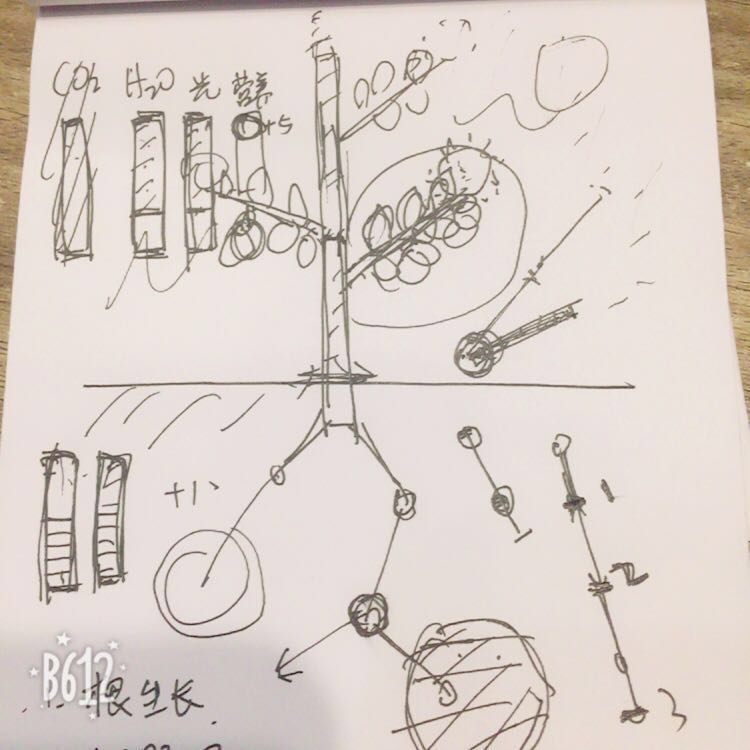 CO2 H2O 光 营养
+5
+1
1
2
3
B612
根生长